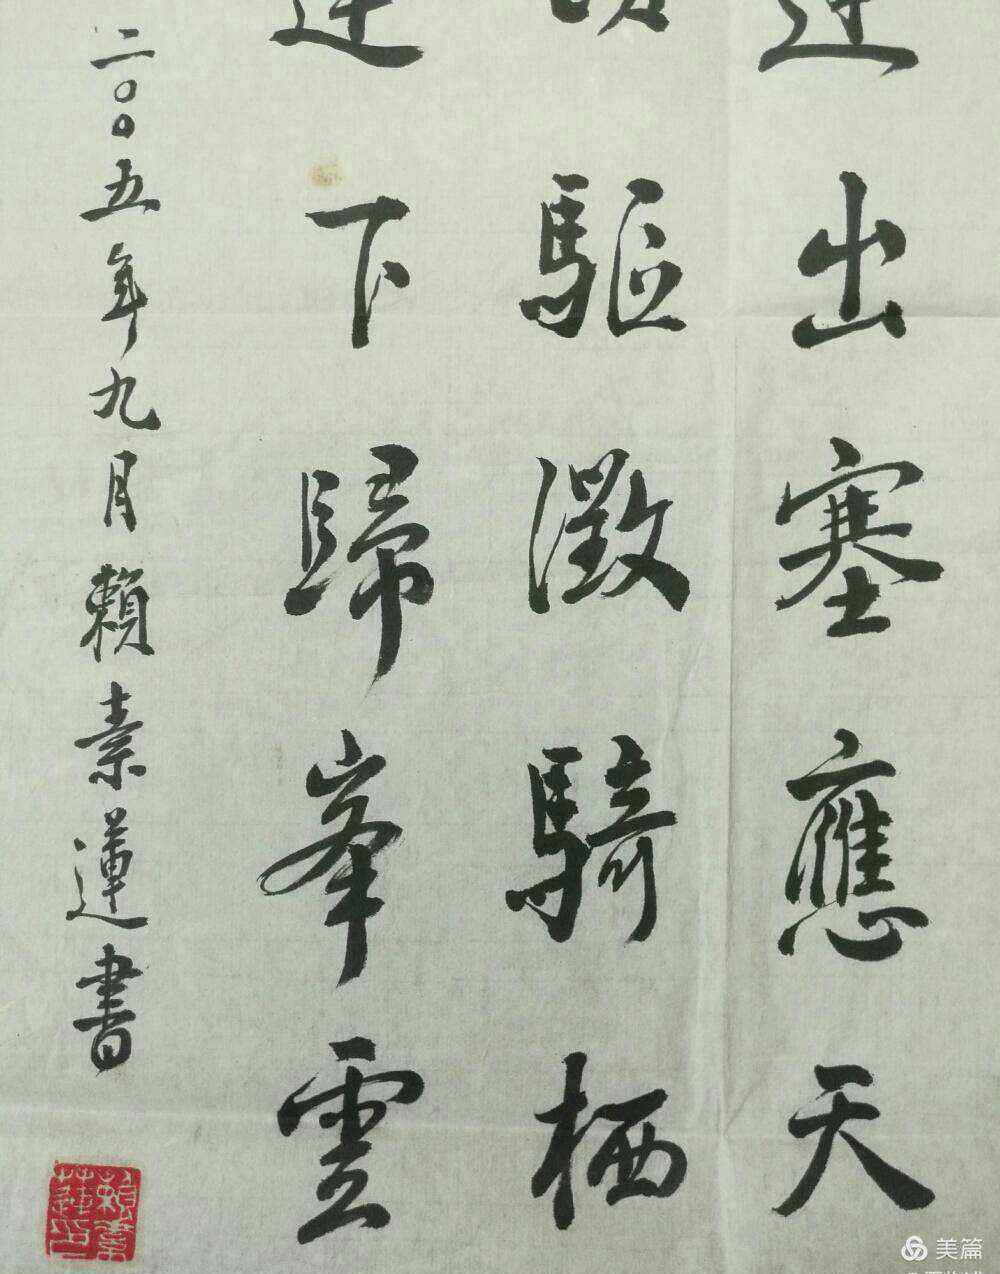 出塞應天
驅激騎栖
下歸峯雲
二〇〇五年九月賴素蓮書
美篇